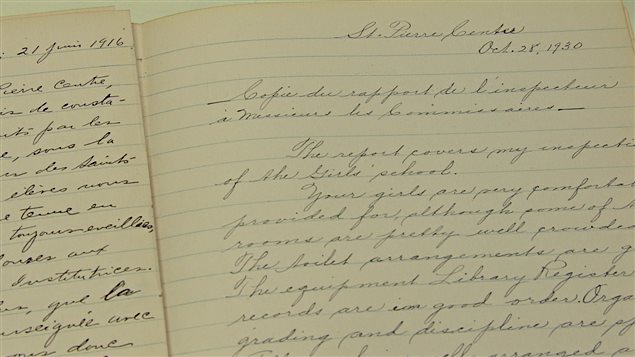 21 juin 1916
Pierre Centre,
de consta-
par les
e, sous la
des Saints-
élèves nous
tenue en
toujours éveillées,
aux
Institutrices.
que la
enseignée avec
donc
St. Pierre Centre
Oct. 28, 1930
Copie du rapport de l'inspecteur
à Messieurs les Commissaires
The report covers my inspecti
of the Girls' school.
Your girls are very comfortab
provided for, although some of t
rooms are pretty well crowded
The toilet arrangements are g
The equipment Library Register
records are in good order. Orga
grading and discipline are
arranged a